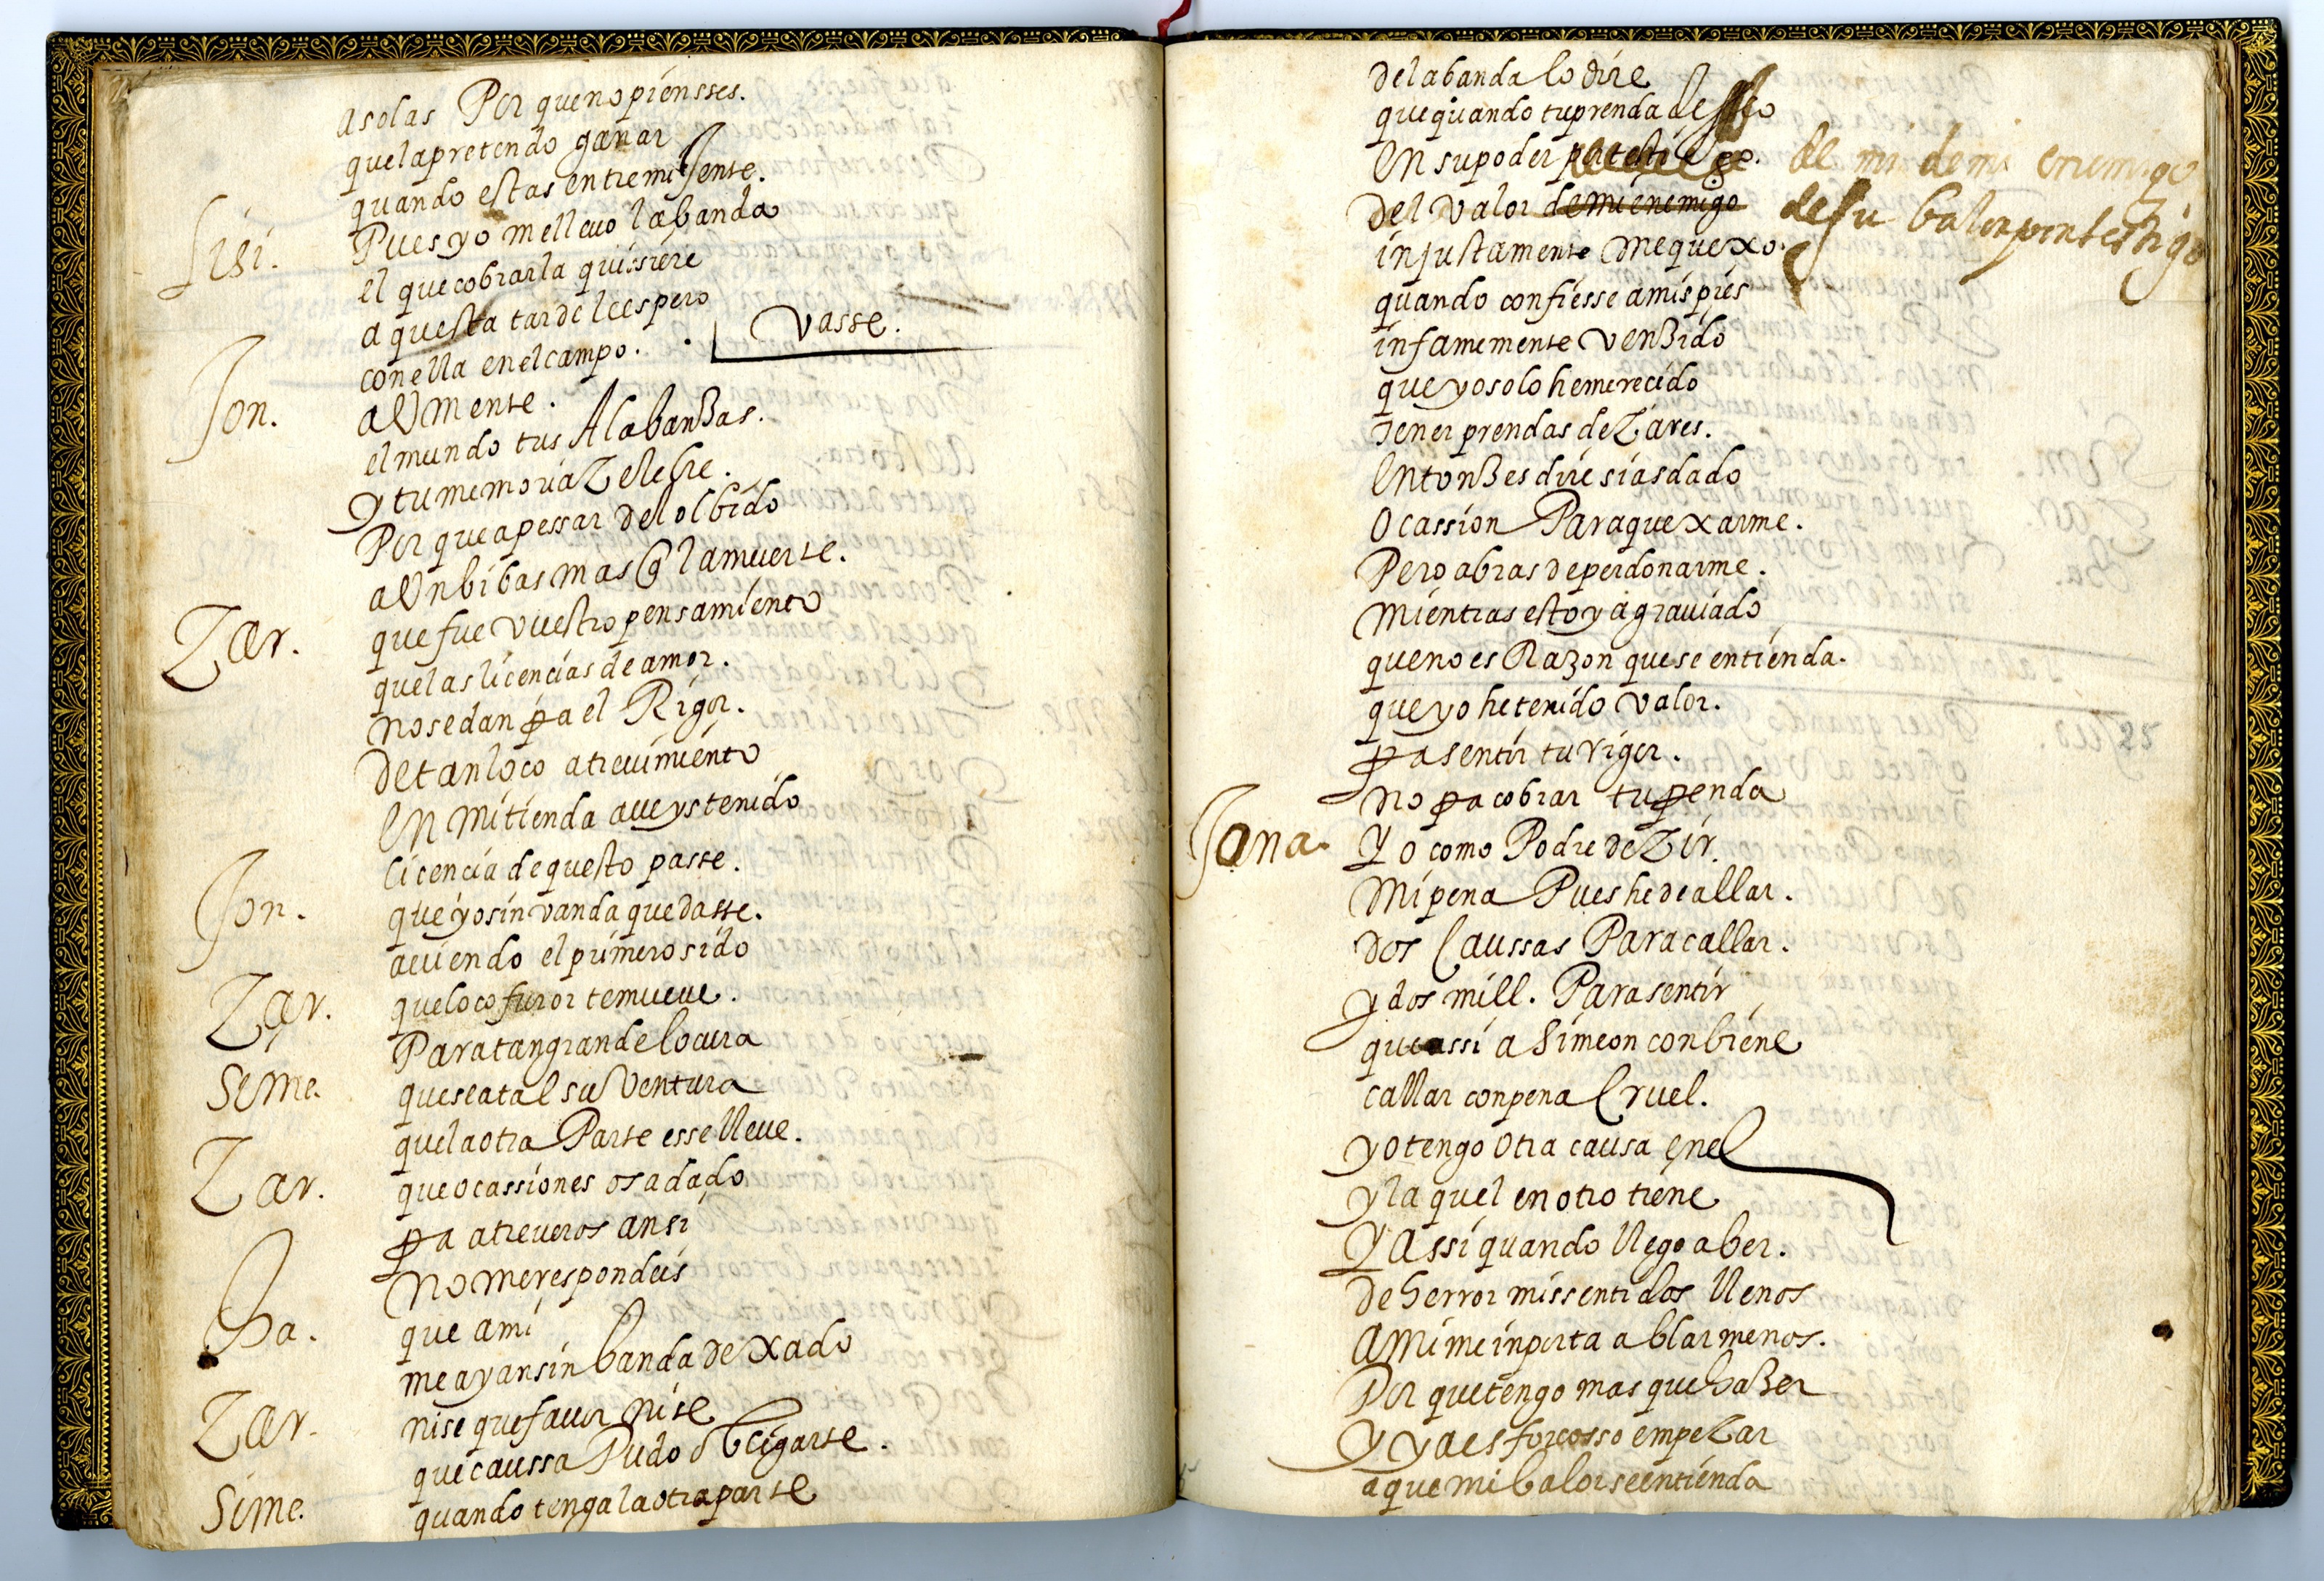 asolas Por quenopiensses.
quelapretendo ganar
quando estas entremi Jente.
Lisi. Pues yo melleuo labanda
el que cobrarla quissiere
aquesta tarde leespero
conella enelcampo. Vasse.
Jon. aUmente.
elmundo tus Alabanzas.
y tumemoria Zelebre.
Por queapessar del olbido
aUnbibas mas q lamuerte.
Zar. que fue vuestro pensamiento
quelas licencias de amor.
nosedan pa el Rigor.
detanloco atreuimiento
En mitienda aueys tenido
licencia dequesto passe.
Jon. que yo sin vanda quedasse.
auiendo elprimero sido
Zar. queloco furor temueue.
Paratangrande locura
Seme. queseatal su Ventura
quelaotra Parte esse lleue.
Zar. queocassiones osadado
pa atreueros ansi
nomerespondeis
Ba. que ami
meayansin banda dexado
Zar. nise quefauor nise
quecaussa Pudo obligarte.
Sime. quando tengalaotraparte
delabanda lo dire
quequando tuprenda desseo
En supoder de mi de mi enemigo
Del Valor demienemigo desu balor portestigo
injustamente mequexo.
quando confiesse amispies
infamemente venzido
queyosolo hemerecido
Tener prendas deZares.
Entonzes dire siasdado
Ocassion Paraquexarme.
Pero abras deperdonarme.
Mientras estoy agrauiado
queno es Razon quese entienda.
queyo hetenido valor.
pa sentir turigor.
no pa cobrar tu prenda
Jana. Yo como Podre deZir.
Mipena Pues hedeallar.
dos Caussas Paracallar.
y dos mill. Para sentir
queassi a Simeon conbiene
callar conpena Cruel.
yo tengo otra causa enel
y la quel en otro tiene
Y assi quando llego aber.
de herror missentidos llenos
Amimeinporta ablar menos.
Por quetengo mas que hazer
Y yaes forcosso empeZar
a que mibalor seentienda
25